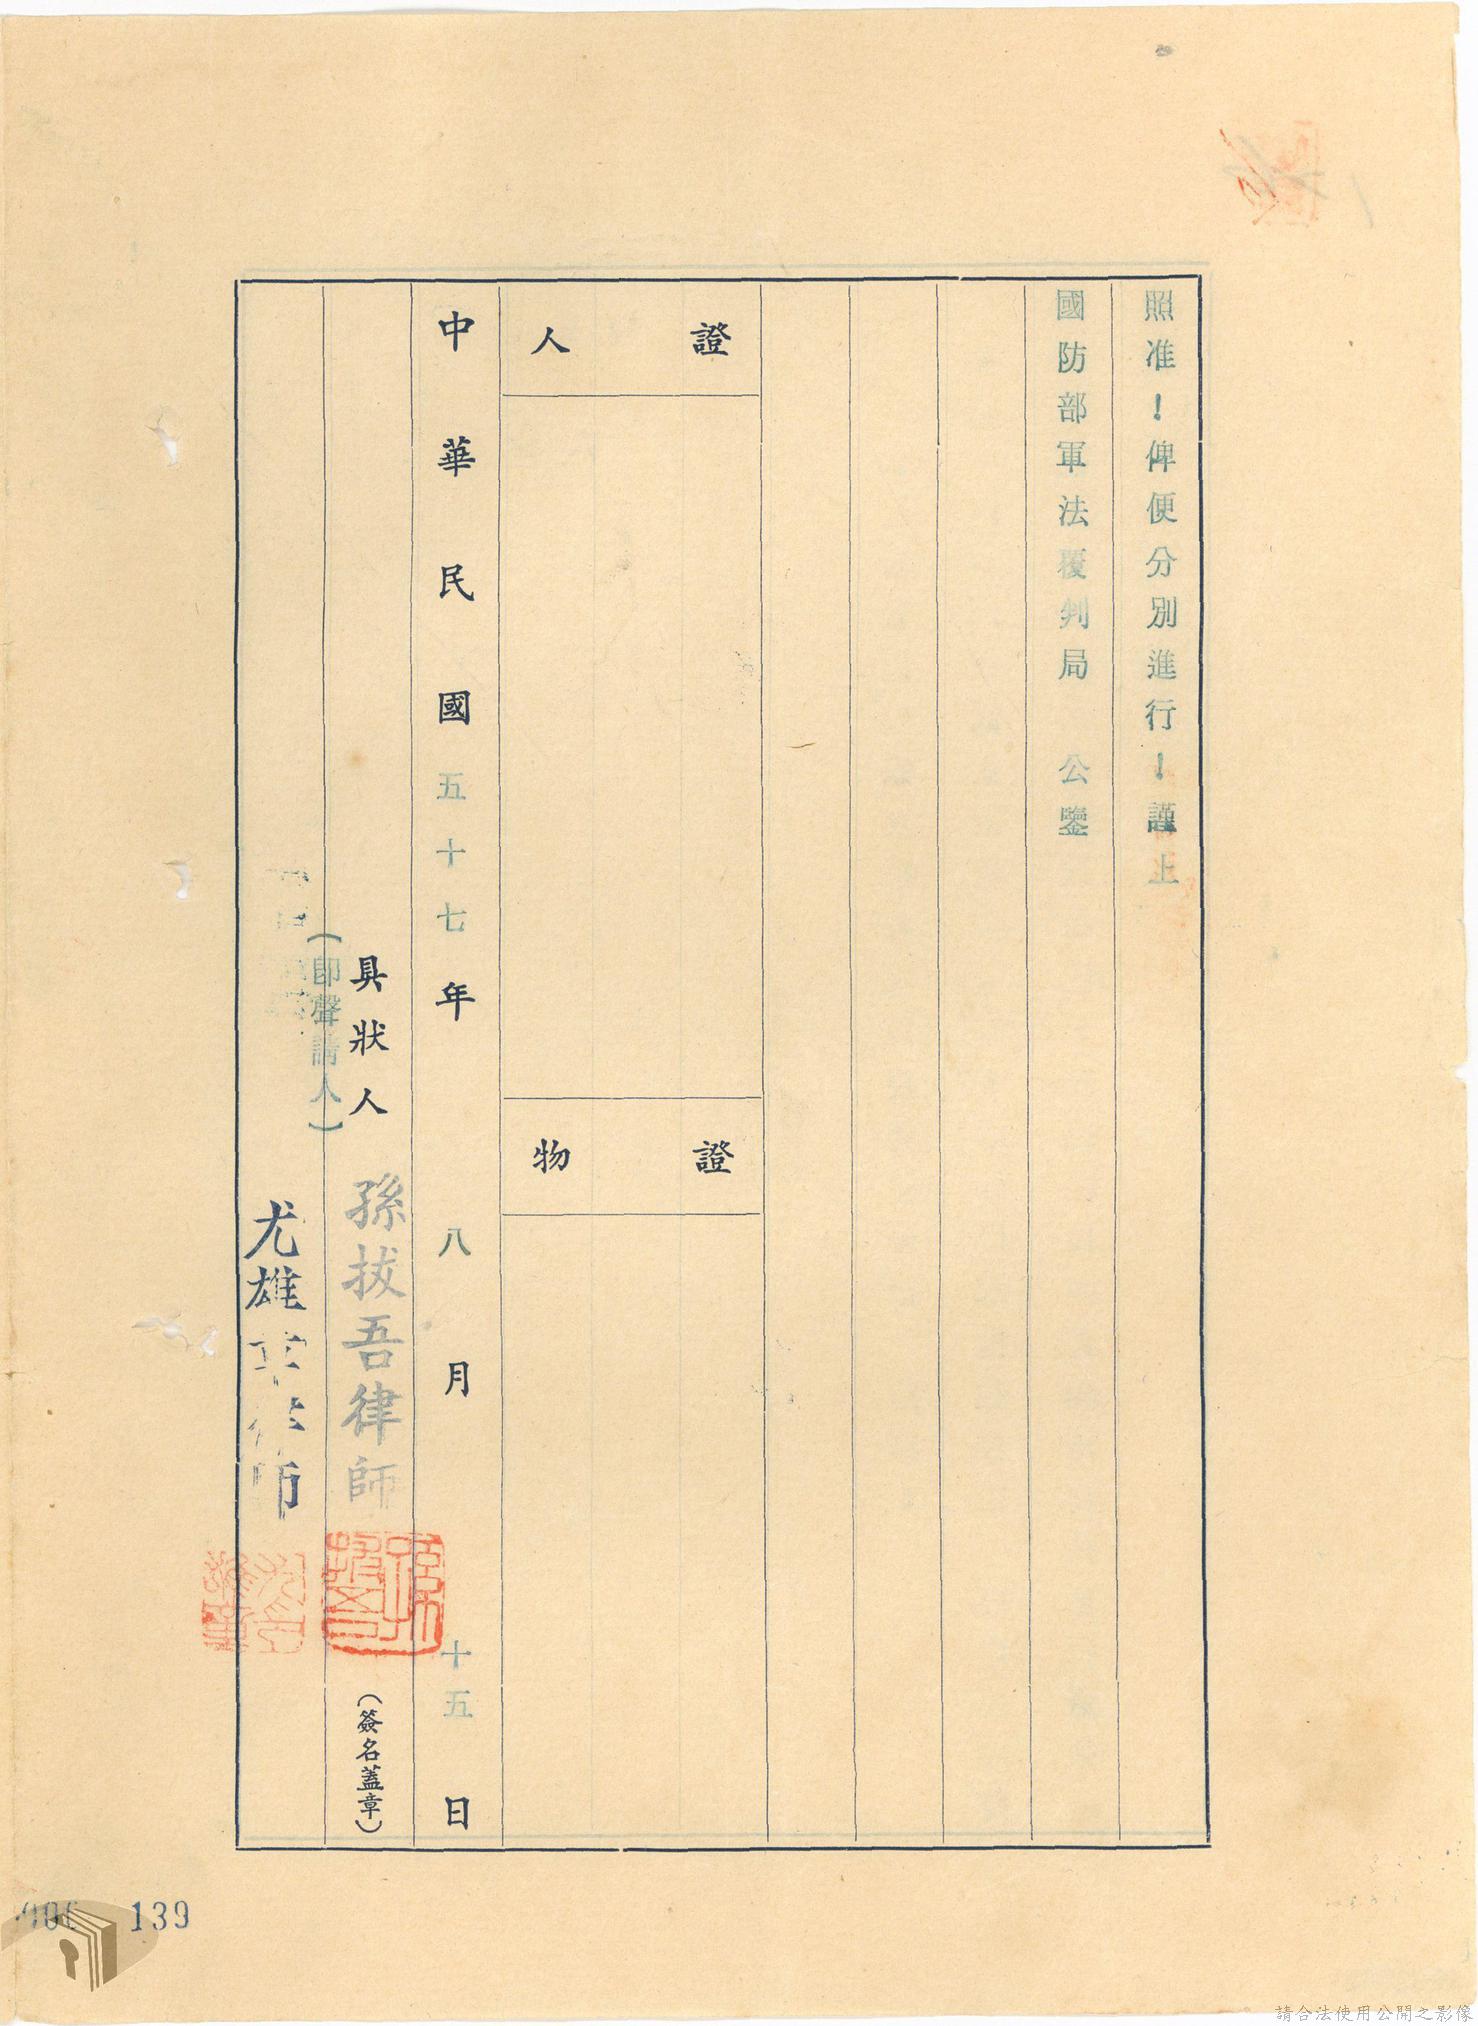 照准！俾便分別進行！謹上
國防部軍法覆判局　公鑒
證人
證物
中華民國五十七年八月十五日
具狀人　孫拔吾律師（簽名蓋章）
（即聲請人）
尤雄　律師
139
請合法使用公開之影像